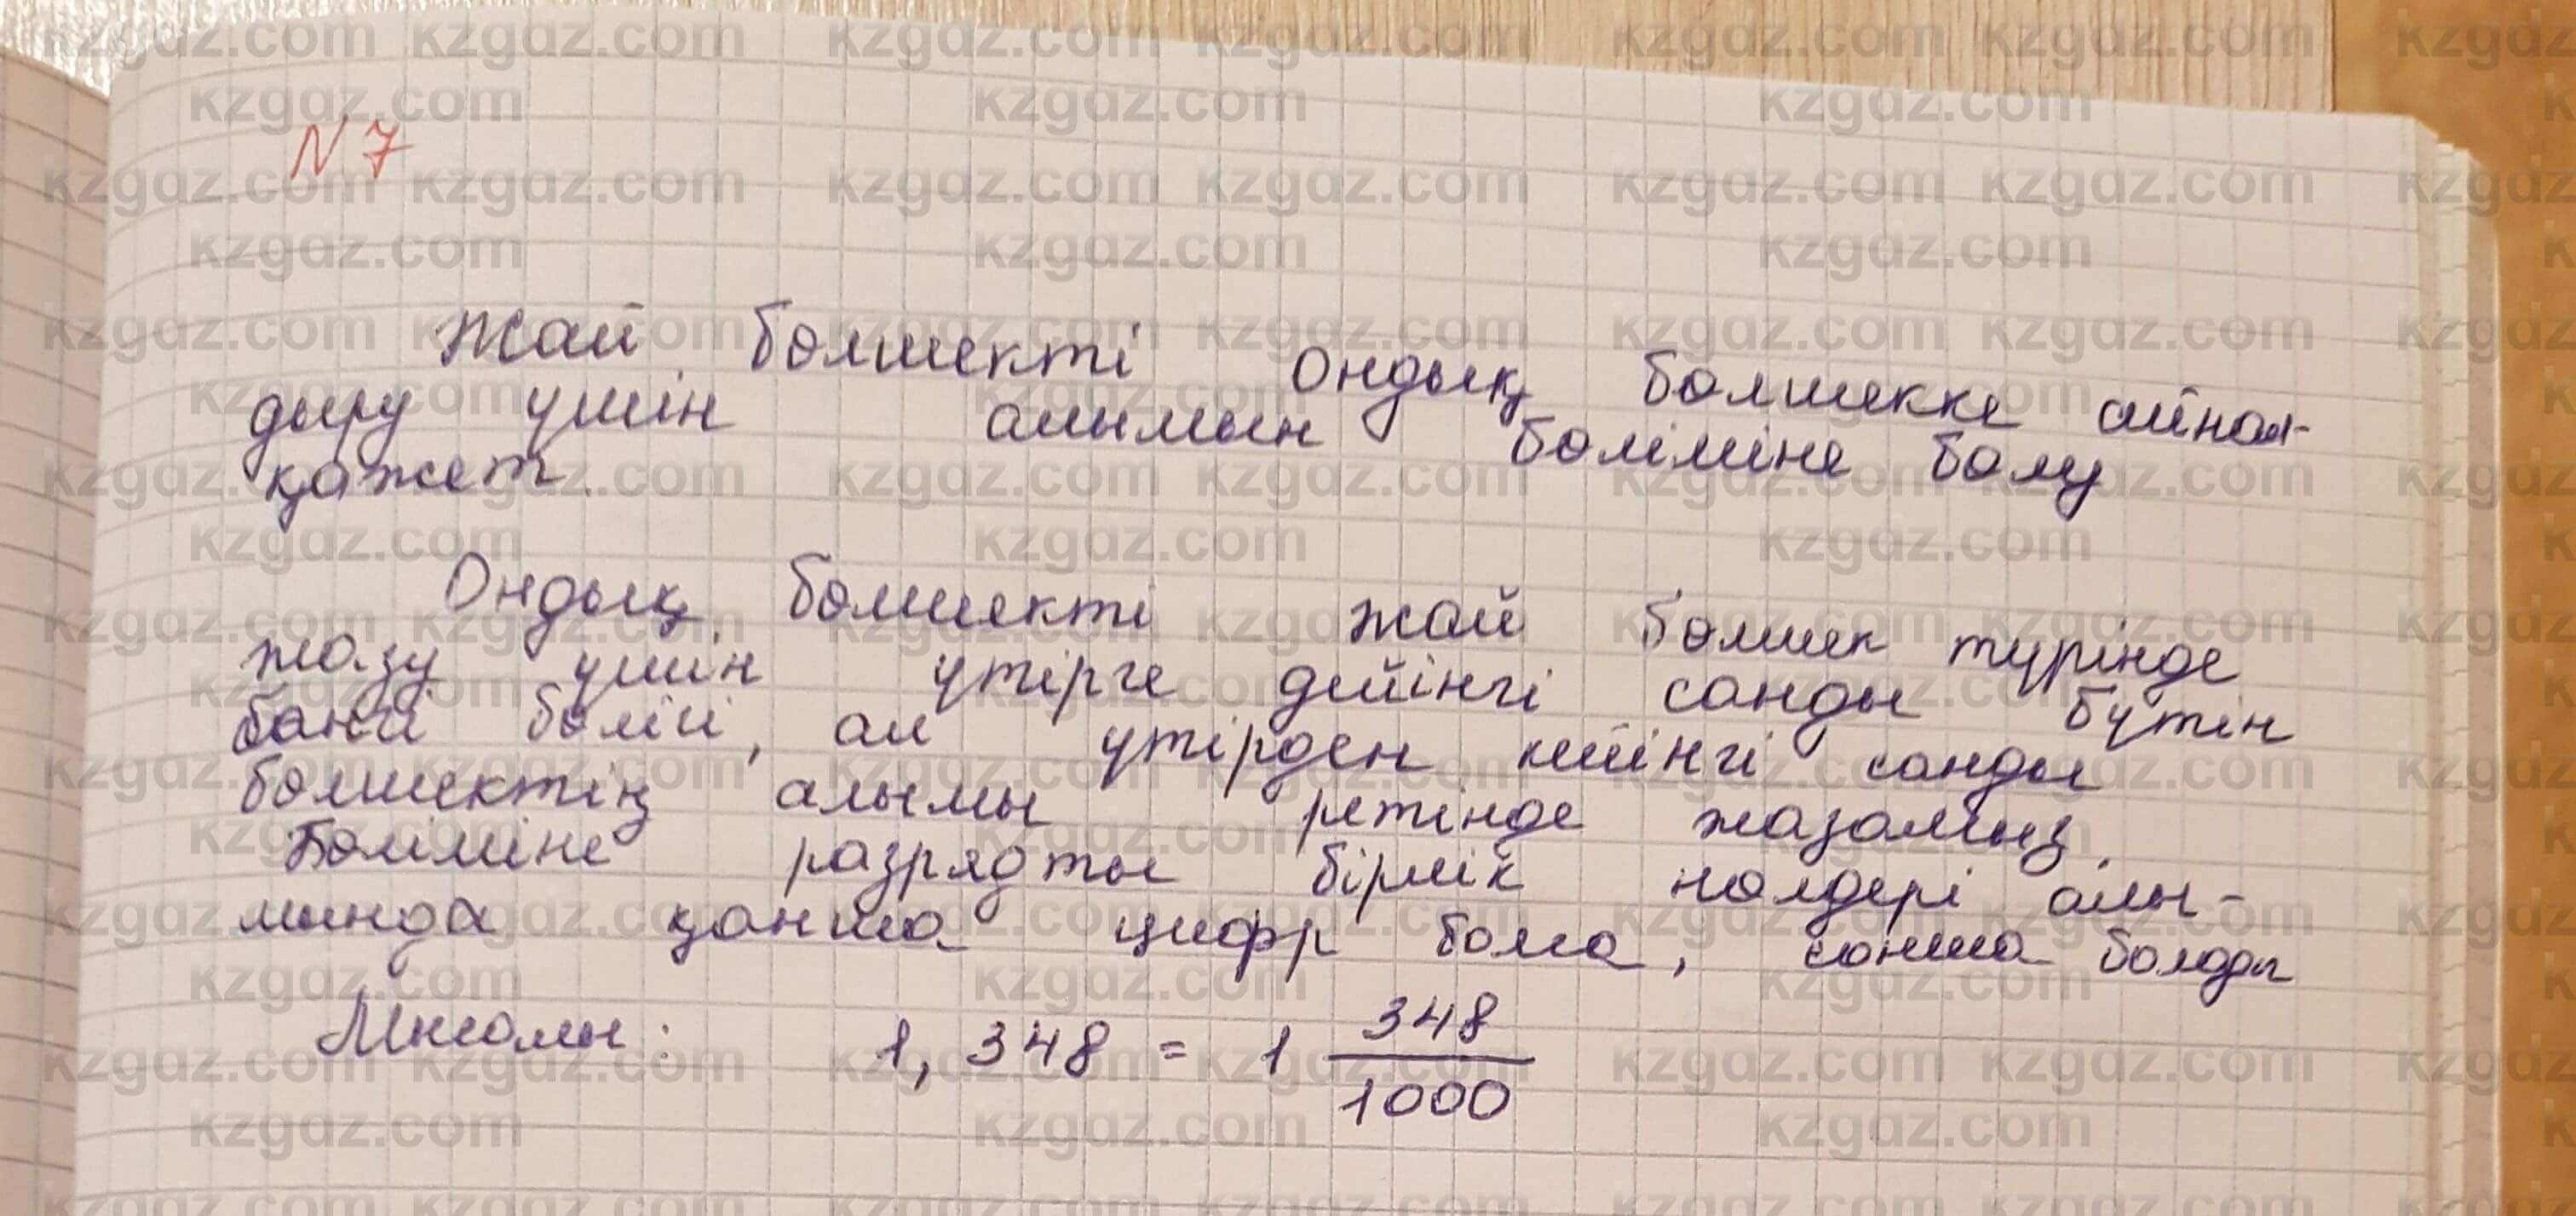 N 7
Жай бөлшекті ондық бөлшекке айнал-
дыру үшін алымын бөліміне бөлу
қажет.
Ондық бөлшекті жай бөлшек түрінде
жазу үшін үтірге дейінгі санды бүтін
бөлігі, ал үтірден кейінгі санды
бөлшектің алымы ретінде жазамыз.
Бөліміне разрядты бірлік нөлдері алы-
мында қанша цифр болса, сонша болады
Мысалы: 1,348 = 1 348/1000
kzgdz.com